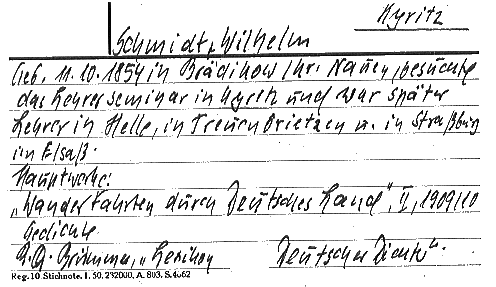 Kyritz
Schmidt, Wilhelm
Geb. 11.10.1854 in Brädikow Kr. Nauen, besuchte
das Lehrerseminar in Kyritz und war später
Lehrer in Helle, in Treuenbrietzen u. in Straßburg
im Elsaß.
Hauptwerke:
„Wanderfahrten durch Deutsches Land", II, 1909/10
Gedichte
Brümmer, „Lexikon Deutscher Dichter".
Reg. 10 Stichnote. I. 50. 232000. A. 803. S. 4662